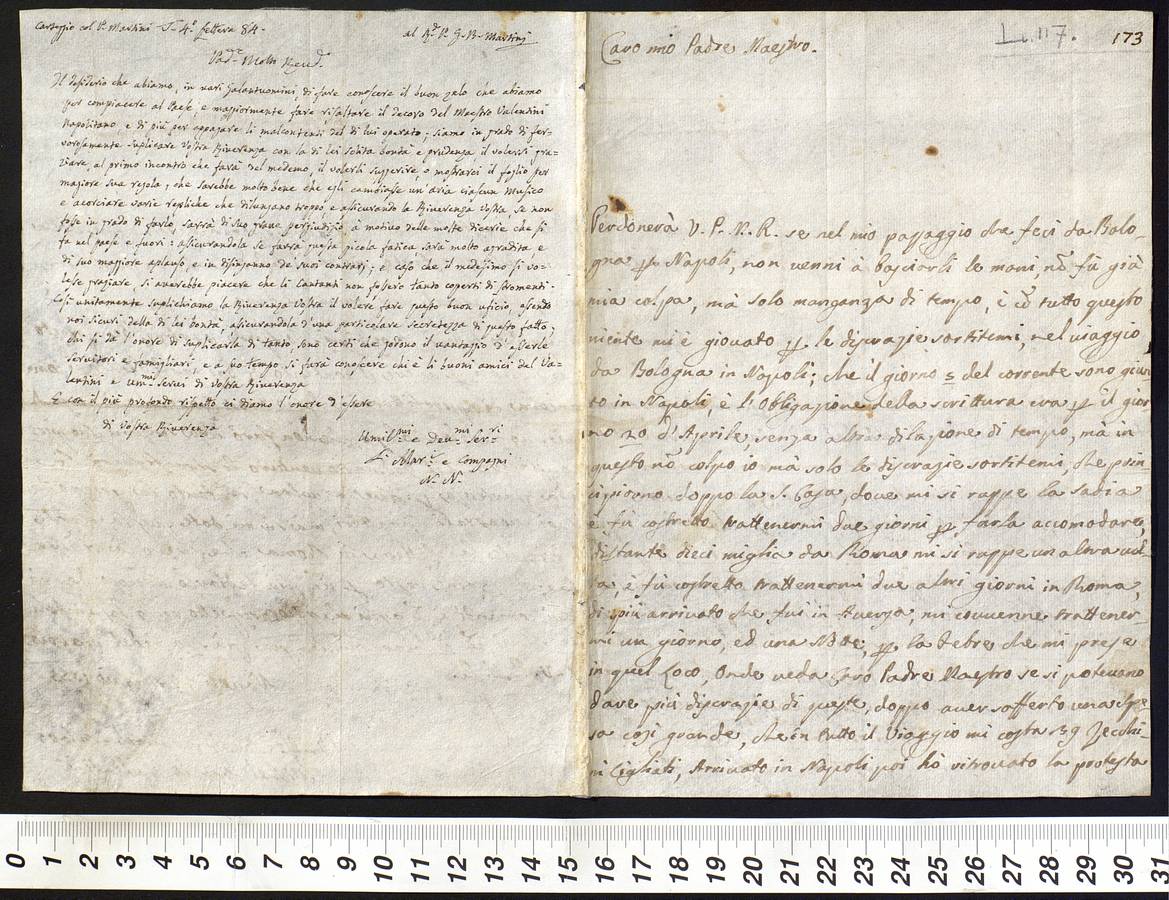 Carteggio col P. Martini T. 4.º lettera 84.
al R.do P. G. B. Martini
Pad.e Molto Rev.do
Il desiderio che abiamo, in vari galantuomini, di fare conoscere il buon zelo che abiamo
per compiacere al Paese, e maggiormente fare risaltare il decoro del Maestro Valentini
Napolitano, e di più per appagare li malcontenti del di lui operato; siamo in grado di fer-
vorosamente suplicare Vostra Riverenza con la di lei solita bontà e prudenza il volersi gra-
ziare, al primo incontro che farà del medemo, il volerli suggerire, o mostrarci il foglio per
magiore sua regola, che sarebbe molto bene che egli cambiasse un'aria ciascun Musico
e acorciare varie repliche che dilungano tropo, e asicurando la Riverenza Vostra se non
fosse in grado di farlo, sarà di suo grave pregiudizio, a motivo delle molte dicerie che si
fa nel paese e fuori: asicurandola se farrà questa picola fatica sarà molto agradita e
di suo maggiore aplauso, e in disinganno de suoi contrari; e caso che il medesimo si vo-
lese graziare, si averebbe piacere che li Cantanti non fossero tanto coperti di stromenti.
Così unitamente suplichiamo la Riverenza Vostra il volere fare questo buon uficio, essendo
noi sicuri della di lei bontà, asicurandola d'una particolare secretezza di questo fatto;
chi si dà l'onore di suplicarla di tanto, sono certi che godono il vantaggio d'esserle
servitori e famigliari, e a suo tempo si farà conoscere chi è li buoni amici del Va-
lentini e um.mi servi di vostra Riverenza
E con il più profondo rispetto ci diamo l'onore d'essere
di Vostra Riverenza
Umil.mi e Dev.mi Ser.ri
Li Mar. e Compagni
N. N.
L. 117.
173
Caro mio Padre Maestro.
Perdonerà V. P. M. R. se nel mio passaggio che feci da Bolo-
gna p Napoli, non venni à basciarli le mani, nō fù già
mia colpa, mà solo manganza di tempo, è cō tutto questo
niente mi è giovato p le disgrazie sortitemi, nel viaggio
da Bologna in Napoli; che il giorno 5 del corrente sono giun
to in Napoli, è l'Obligazione della scrittura era p il gior
no 20 d'Aprile, senza altra dilazione di tempo, mà in
questo nō colpo io mà solo le disgrazie sortitemi, che prin
cipiorno doppo la S. Casa, dove mi si roppe la sadia
e fù costretto trattenermi due giorni p farla accomodare,
distante dieci miglia da Roma mi si roppe un altra vol
ta, è fù costretto trattenermi due altri giorni in Roma,
di più arrivato che fui in Aversa, mi convenne trattener
mi un giorno, ed una Notte, p la febre che mi prese
in quel Loco, Onde veda Caro Padre Maestro se si potevano
dare più disgrazie di queste, doppo aver sofferto una spe
sa così grande, che in tutto il Viaggio mi costa 39 Zecchi-
ni Gigliati, Arrivato in Napoli poi hò ritrovato la protesta